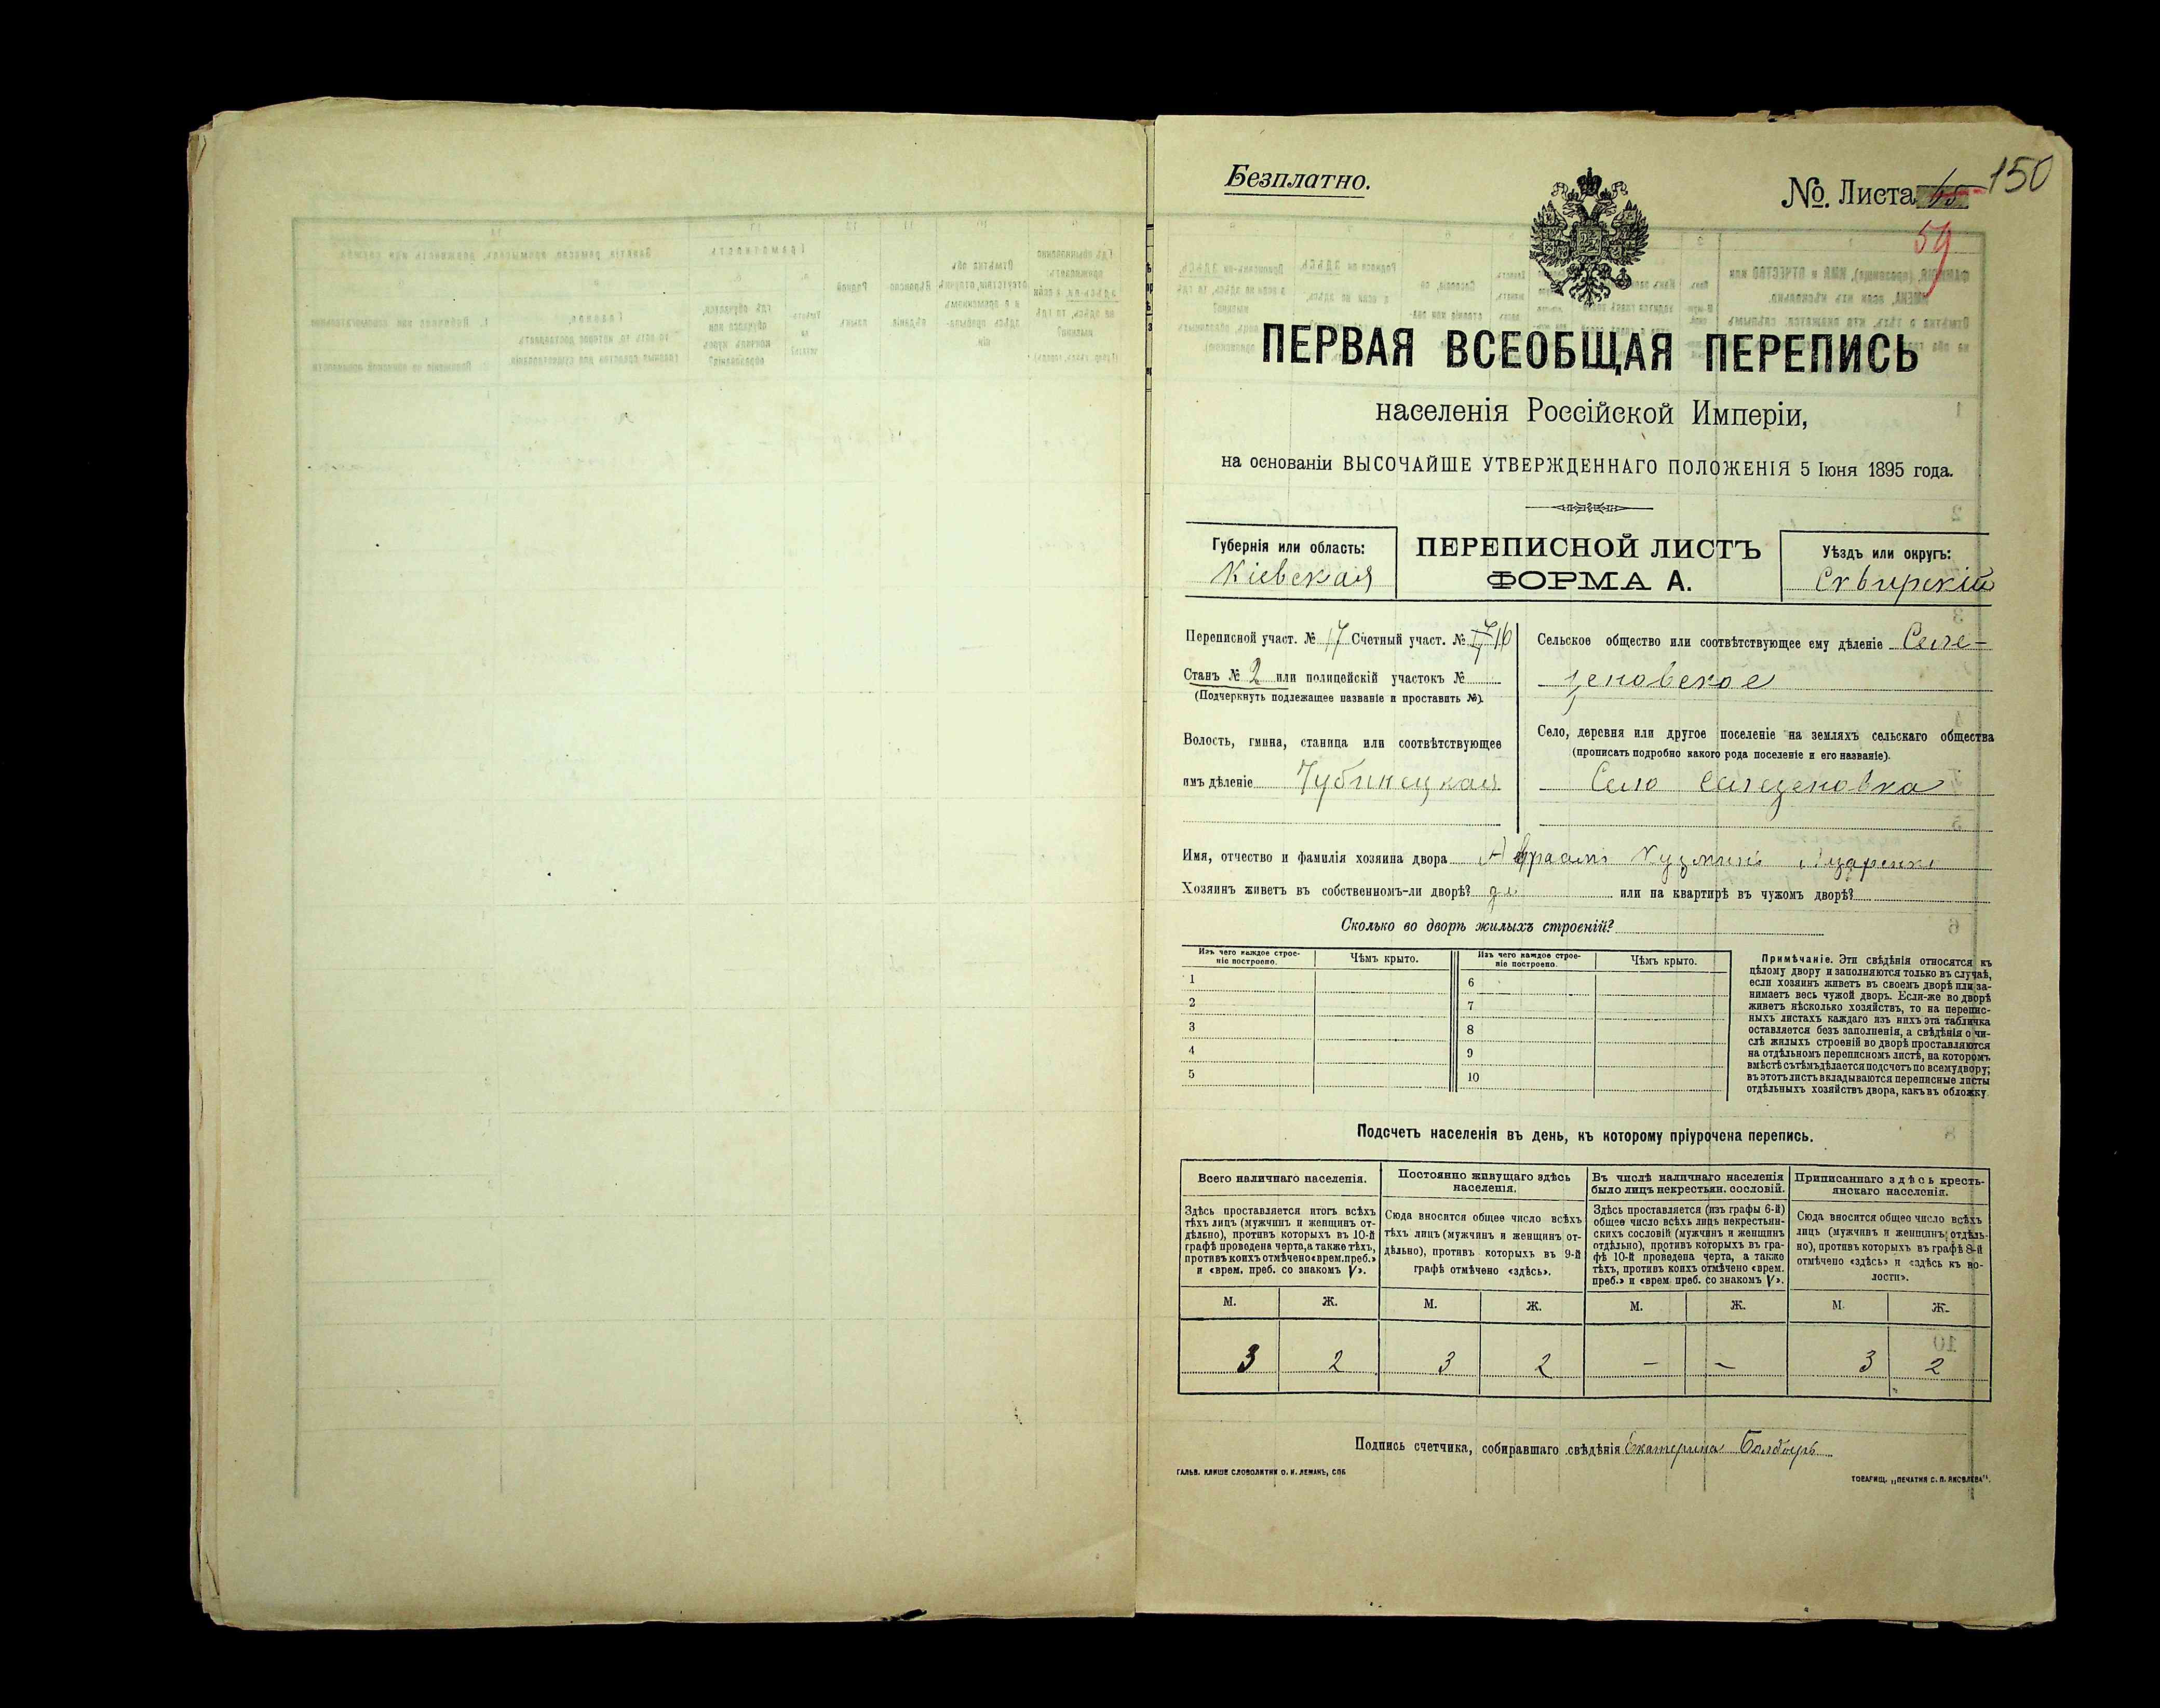 Безплатно.
№. Листа 150
59
ПЕРВАЯ ВСЕОБЩАЯ ПЕРЕПИСЬ
населенія Россійской Имперіи,
на основаніи ВЫСОЧАЙШЕ УТВЕРЖДЕННАГО ПОЛОЖЕНІЯ 5 Іюня 1895 года.
Губернія или область:
Кіевская
ПЕРЕПИСНОЙ ЛИСТЪ
ФОРМА А.
Уѣздъ или округъ:
Сквирскій
Переписной участ. № 17 Счетный участ. № 16
Станъ № 2 или полицейскій участокъ №
(Подчеркнуть подлежащее названіе и проставить №).
Волость, гмина, станица или соотвѣтствующее
имъ дѣленіе Чубинецкая
Сельское общество или соотвѣтствующее ему дѣленіе Селе-
зеновское
Село, деревня или другое поселеніе на земляхъ сельскаго общества
(прописать подробно какого рода поселеніе и его названіе).
Село Селезеновка
Имя, отчество и фамилія хозяина двора Авраамъ Кузминъ
Хозяинъ живетъ въ собственномъ-ли дворѣ? да или на квартирѣ въ чужомъ дворѣ?
Сколько во дворѣ жилыхъ строеній?
Изъ чего каждое строе-
ніе построено.
Чѣмъ крыто.
Изъ чего каждое строе-
ніе построено.
Чѣмъ крыто.
1 6
2 7
3 8
4 9
5 10
Примѣчаніе. Эти свѣдѣнія относятся къ
цѣлому двору и заполняются только въ случаѣ,
если хозяинъ живетъ въ своемъ дворѣ или за-
нимаетъ весь чужой дворъ. Если-же во дворѣ
живетъ нѣсколько хозяйствъ, то на перепис-
ныхъ листахъ каждаго изъ нихъ эта табличка
оставляется безъ заполненія, а свѣдѣнія о чи-
слѣ жилыхъ строеній во дворѣ проставляются
на отдѣльномъ переписномъ листѣ, на которомъ
вмѣстѣ съ тѣмъ дѣлается подсчетъ по всему двору;
въ этотъ листъ вкладываются переписные листы
отдѣльныхъ хозяйствъ двора, какъ въ обложку.
Подсчетъ населенія въ день, къ которому пріурочена перепись.
Всего наличнаго населенія.
Здѣсь проставляется итогъ всѣхъ
тѣхъ лицъ (мужчинъ и женщинъ от-
дѣльно), противъ которыхъ въ 10-й
графѣ проведена черта, а также тѣхъ,
противъ коихъ отмѣчено «врем. преб.»
и «врем. преб. со знакомъ V».
Постоянно живущаго здѣсь
населенія.
Сюда вносится общее число всѣхъ
тѣхъ лицъ (мужчинъ и женщинъ от-
дѣльно), противъ которыхъ въ 9-й
графѣ отмѣчено «здѣсь».
Въ числѣ наличнаго населенія
было лицъ некрестьян. сословій.
Здѣсь проставляется (изъ графы 6-й)
общее число всѣхъ лицъ некрестьян-
скихъ сословій (мужчинъ и женщинъ
отдѣльно), противъ которыхъ въ гра-
фѣ 10-й проведена черта, а также
тѣхъ, противъ коихъ отмѣчено «врем.
преб.» и «врем. преб. со знакомъ V».
Приписаннаго здѣсь кресть-
янскаго населенія.
Сюда вносится общее число всѣхъ
лицъ (мужчинъ и женщинъ отдѣль-
но), противъ которыхъ въ графѣ 8-й
отмѣчено «здѣсь» и «здѣсь къ во-
лости».
М. Ж. М. Ж. М. Ж. М. Ж.
3 2 3 2 — — 3 2
Подпись счетчика, собиравшаго свѣдѣнія Екатерина
ГАЛЬВ. КЛИШЕ СЛОВОЛИТНИ О. И. ЛЕМАНЪ, СПБ
ТОВАРИЩ. „ПЕЧАТНЯ С. П. ЯКОВЛЕВА“.